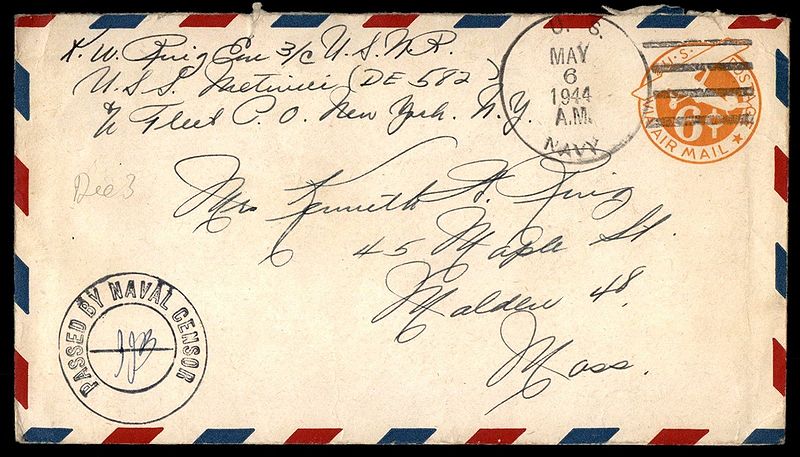 K. W. King Em 3/c U.S.N.R.
U.S.S. Metivier (DE 582)
℅ Fleet P. O. New York. N.Y.
U. S.
MAY
6
1944
A.M.
NAVY
U.S. POSTAGE
6¢
VIA AIR MAIL
Mrs Kenneth W. King
45 Maple St.
Malden 48.
Mass.
PASSED BY NAVAL CENSOR